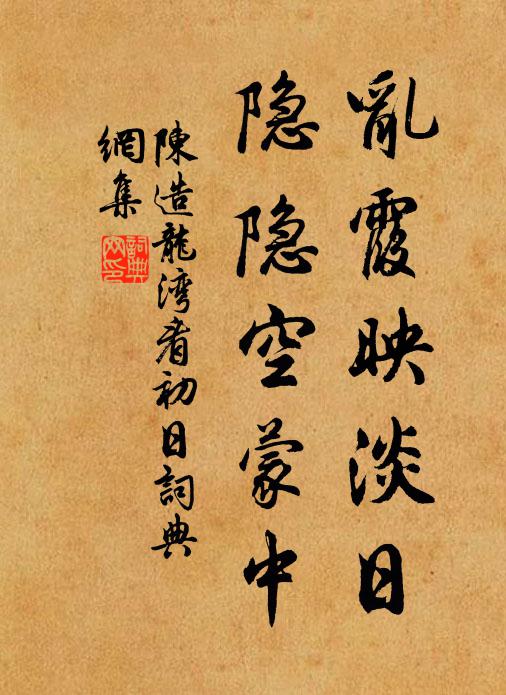 亂霞映淡日
隐隐空蒙中
陳造龍湾看初日詞典
網集
詞典
网印